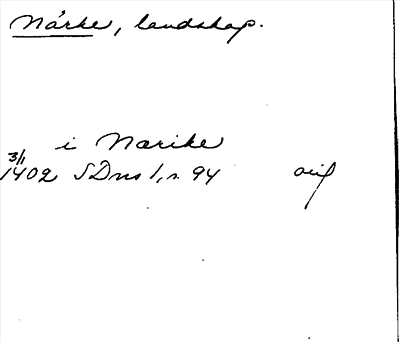 Närke, landskap.
i Narike
3/1
1402 SDns 1, s. 94 orig